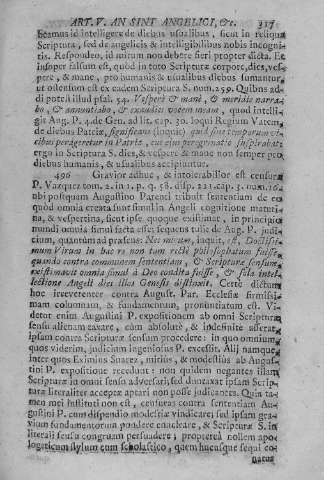 ART. V. AN SINT ANGELICI, &c. 317
beamus id intelligere de diebus usualibus, sicut in reliqua
Scriptura, sed de angelicis & intelligibilibus nobis incogni-
tis. Respondeo, id mirum non debere fieri propter dicta. Et
insuper falsum est, quòd in toto Scriptura corpore, dies, ves-
pere, & mane, pro humanis & usualibus diebus sumantur,
ut ostensum est ex eadem Scriptura S. num. 259. Quibus ad-
di potest illud psal. 54. Vesperè & manè, & meridie narra-
bo, & annuntiabo, & exaudiet vocem meam, quod intelli-
git Aug. P. 4. de Gen. ad lit. cap. 30. loqui Regium Vatem
de diebus Patriæ, significans (loquor) quod sine temporum vi-
cibus perageretur in Patria, cui ejus peregrinatio suspirabat:
ergo in Scriptura S. dies, & vespere & mane non semper pro
diebus humanis, & usualibus accipiuntur.
496 Gravior adhuc, & intolerabilior est censura
P. Vazquez tom. 2. in 1. p. q. 58. disp. 221. cap. 3. num. 16.
ubi postquam Augustino Parenti tribuit sententiam de eo
quòd omnia creata sunt simul in Angeli cognitione matuti-
na, & vespertina, sicut ipse quoque existimat, in principio
mundi omnia simul facta esse: sequens tulit de Aug. P. judi-
cium, quantùm ad præsens: Nec mirum, inquit, est, Doctissi-
mum Virum in hac re non tam rectè Philosophatum fuisse,
quando contra communem sententiam, & Scripturæ sensum
existimavit omnia simul à Deo condita fuisse, & sola intel-
lectione Angeli dies illas Genesis distinxit. Certè dictum
hoc irreverenter contra August. Par. Ecclesiæ firmissi-
mam columnam, & fundamentum, pronuntiatum est. Vi-
detur enim Augustini P. expositionem ab omni Scripturæ
sensu alienam taxare, cùm absolutè, & indefinitè asserat
ipsam contra Scripturæ sensum procedere: in quo omnium,
quos viderim, judicium ingeniosus P. excessit. Alij namque,
inter quos Eximius Suarez, mitiùs, & modestiùs ab Augus-
tini P. expositione recedunt: non quidem negantes illam
Scripturæ in omni sensu adversari, sed dumtaxat ipsam Scrip-
turæ literaliter acceptæ aptari non posse judicantes. Quin ta-
men mei instituti non est, censuras contra sententiam Au-
gustini P. cum dispendio modestiæ vindicare; sed ipsam gra-
vium fundamentorum pondere enucleare, & Scripturæ S. in
literali sensu congruam persuadere; propterea nollem apo-
logeticum stylum cum scholastico, quem hucusque sequi co-
natus